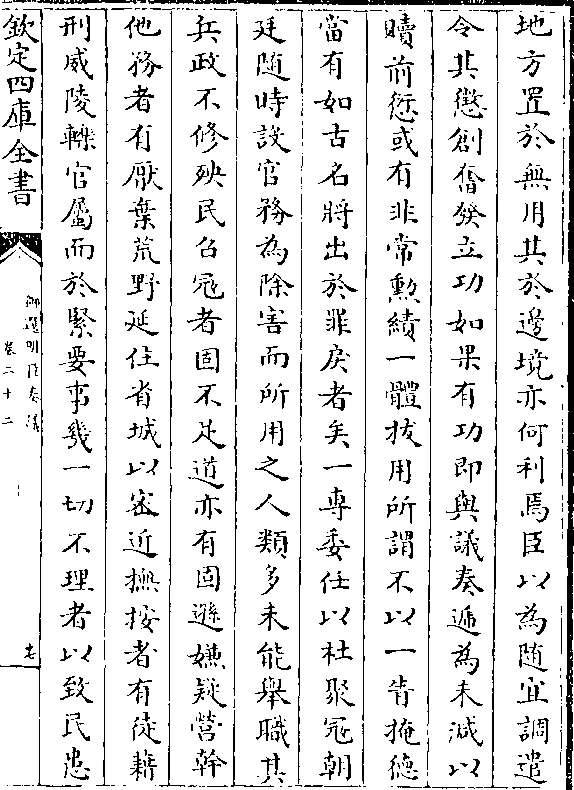 地方置於無用其於邊境亦何利焉臣以為随宜調遣
令其懲創奮發立功如果有功即與議奏遞為末減以
贖前愆或有非常勲績一體拔用所謂不以一眚掩德
當有如古名將出於罪戾者矣一專委任以杜聚寇朝
廷随時設官務為除害而所用之人類多未能舉職其
兵政不修殃民召寇者固不足道亦有固遜嫌疑營幹
他務者有厭棄荒野延住省城以密近撫按者有徒藉
刑威陵轢官屬而於緊要事幾一切不理者以致民患
欽定四庫全書
御選明臣奏議
卷二十二